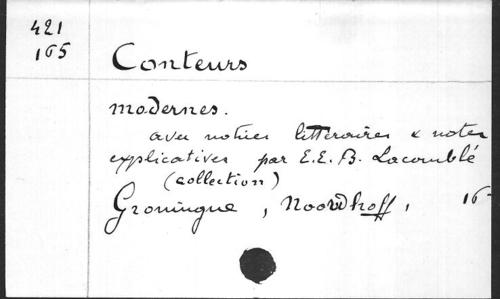 421
165
Conteurs
modernes.
avec notices littéraires & notes
explicatives par E.E.B. Lacomblé
(collection)
Groningue, Noordhoff, 16-